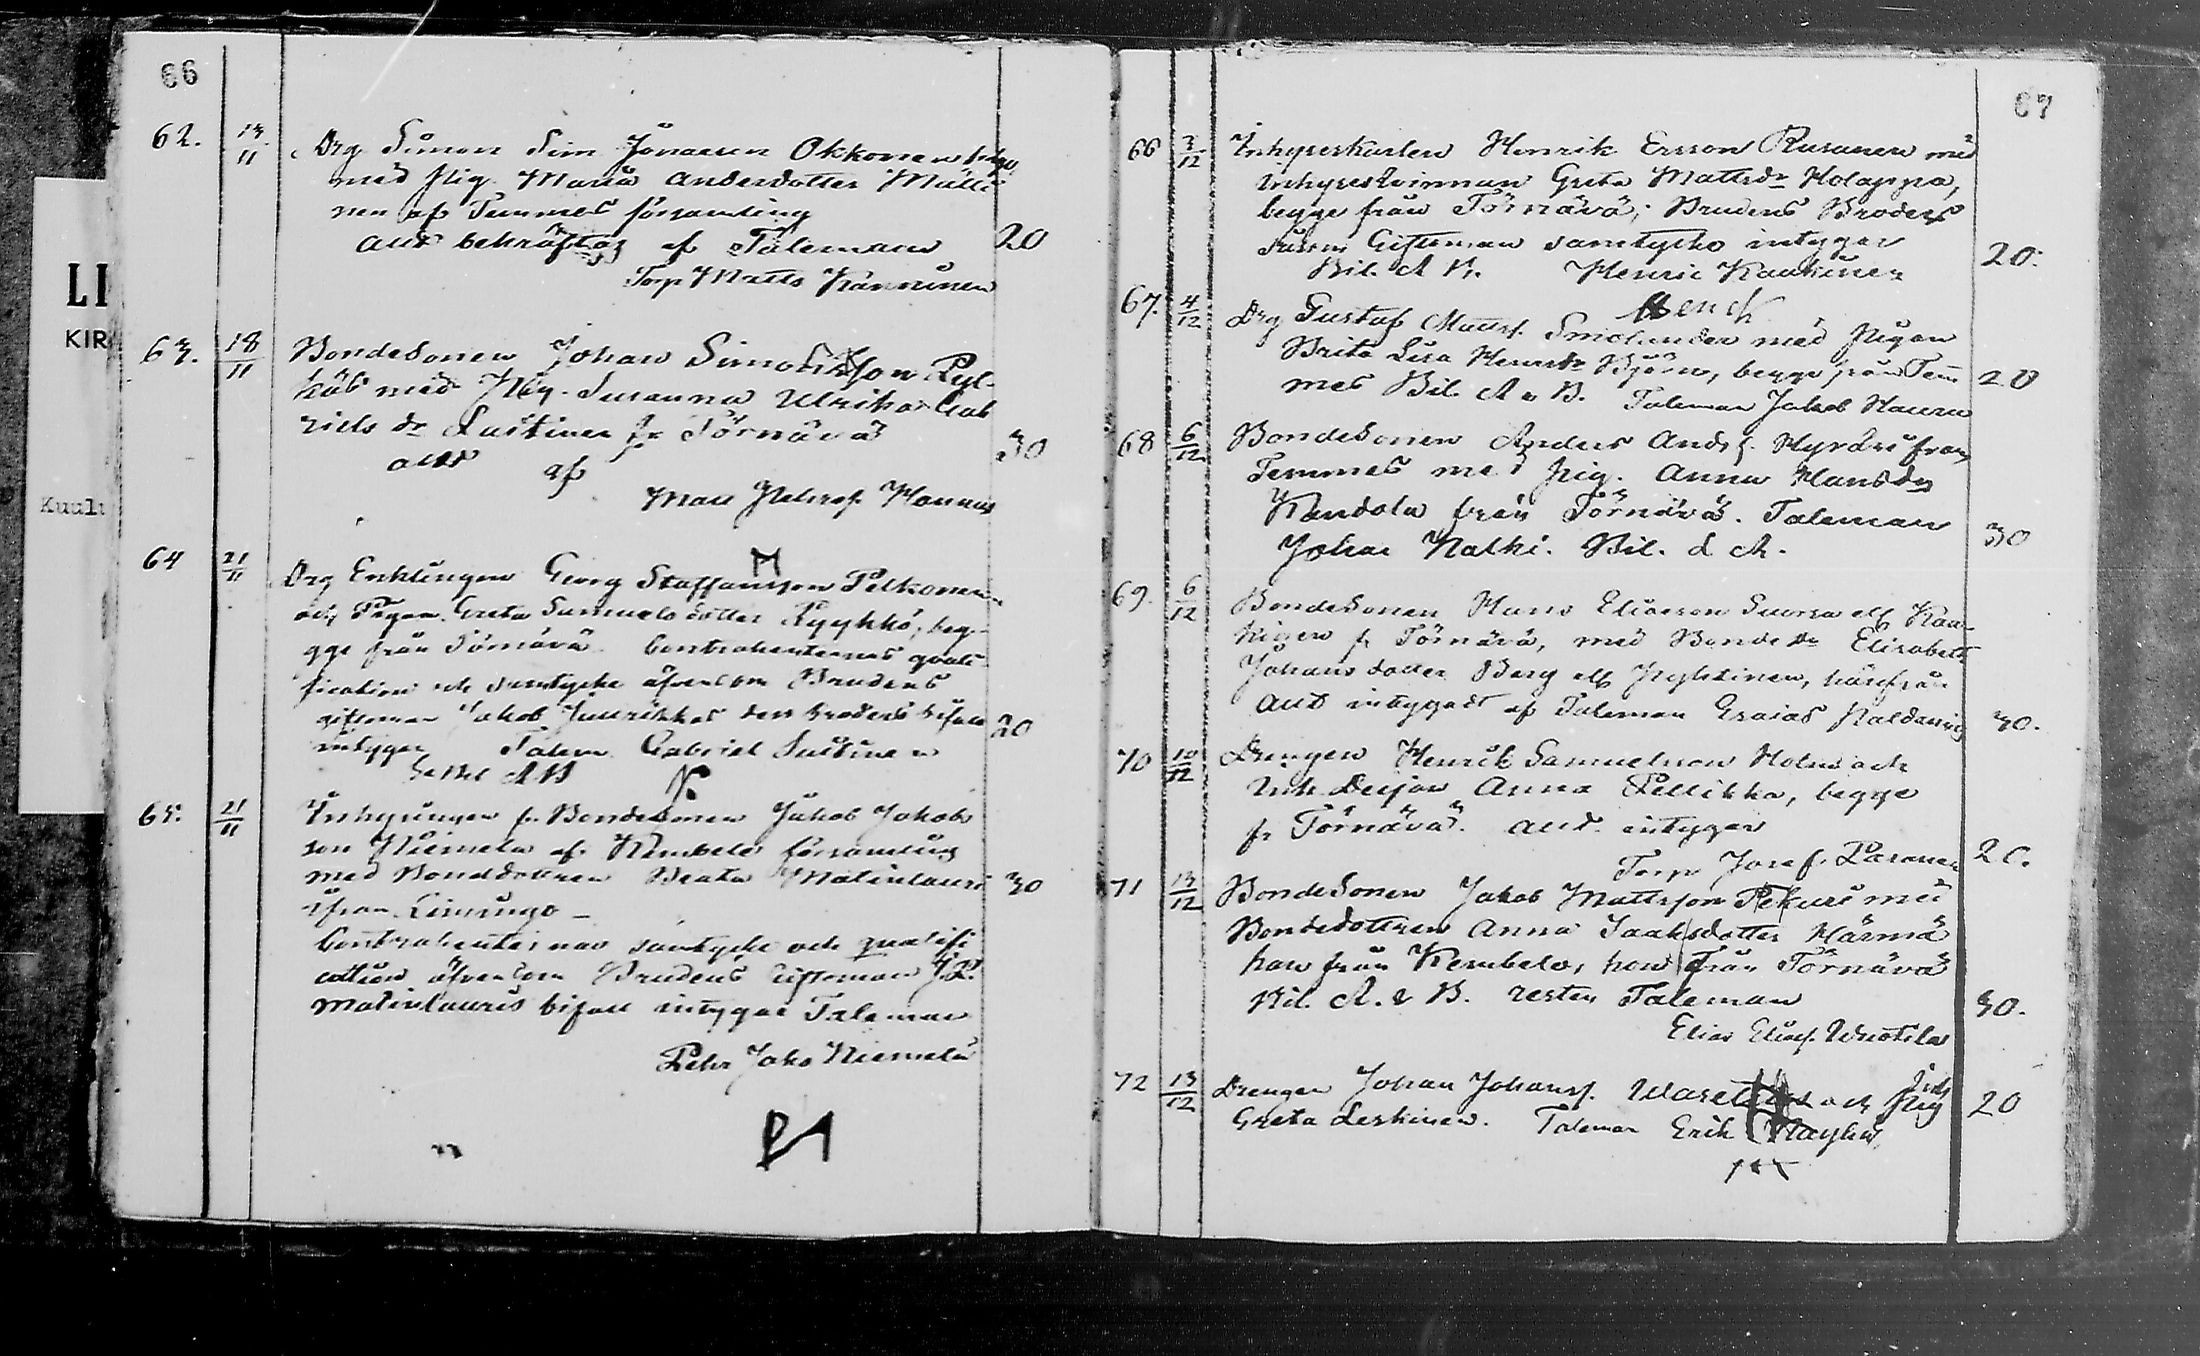 66
62. 13/11 Drg Simon Sim Jönsson Okkonen
med Pig. Maria Andersdotter Mulli
nen af Temmes församling
aut bekräftas af Talemann 20
Torp Matts Kännunen
63. 18/11 Bondesonen Johan Simonsson Pyl-
käs med Pig. Susanna Ulrika Gab
riels dr Lustinen fr Törnävä
aut af 30
Mats Petersf. Hannus
64 21/11 Drg Enklingen Georg Staffansson Pelkonen
och Pigan Greta Samuelsdotter Pyykkö, beg-
gge från Törnävä. Contrahenternas quali
fication och samtycke äfvensom Brudens
giftoman Jakob dess broders bifall 20
intygar Talem. Gabriel Lustinen
Se Bil A B
65. 21/11 Inhysingen fr. Bondesonen Jakob Jakobs
son Niemelä af Kembele församling
med Bondedottren Beata Matinlauri 30
ifrån Limingo –
Contrahenternas samtycke och qualifi
cation äfvensom Brudens Giftoman
Matinlauris bifall intygar Taleman
Pehr Jako Niemelä
67
66 3/12 Inhyseskarlen Henrik Ersson Rusanen med
Inhyseskvinnan Greta Mattsdr Holappa,
begge från Törnävä; Brudens Broders
såsom Giftoman samtycke intygar 20.
Bil. A B. Henric Kaukinen
67. 4/12 Drg Gustaf Mattsf. Smolander med Pigan
Brita Lisa Henrsdr Björn, begge från Tem 20
mes Bil. A & B. Taleman Jakob
68 6/12 Bondesonen Anders Andsf. Hyrkäs från
Temmes med Pig. Anna Hansdr
Kandola från Törnävä. Taleman 30
Johan Halki. Bil. A.
69. 6/12 Bondesonen Hans Eliasson Suorsa ell. Kau-
kinen fr Törnävä, med Bonde dr Elisabeth
Johansdotter Berg ell. härifrån
Aut intygadt af Taleman Esaias 30.
70 10/12 Drengen Henrik Samuelsson Holm och
Inh. Deijan Anna Pellikka, begge
fr Törnävä. Aut. intygar
Torp Josef Paronen 20.
71 13/12 Bondesonen Jakob Mattsson Pekuri med
Bondedottren Anna Isaksdotter Härmä
han från Kembele, hon från Törnävä
Bil. A. & B. Taleman 30.
Elias Eliasf.
72 13/12 Drengen Johan Johansf. och Pig 20
Greta Leskinen. Taleman Erik
LI
KIR
Kuulu